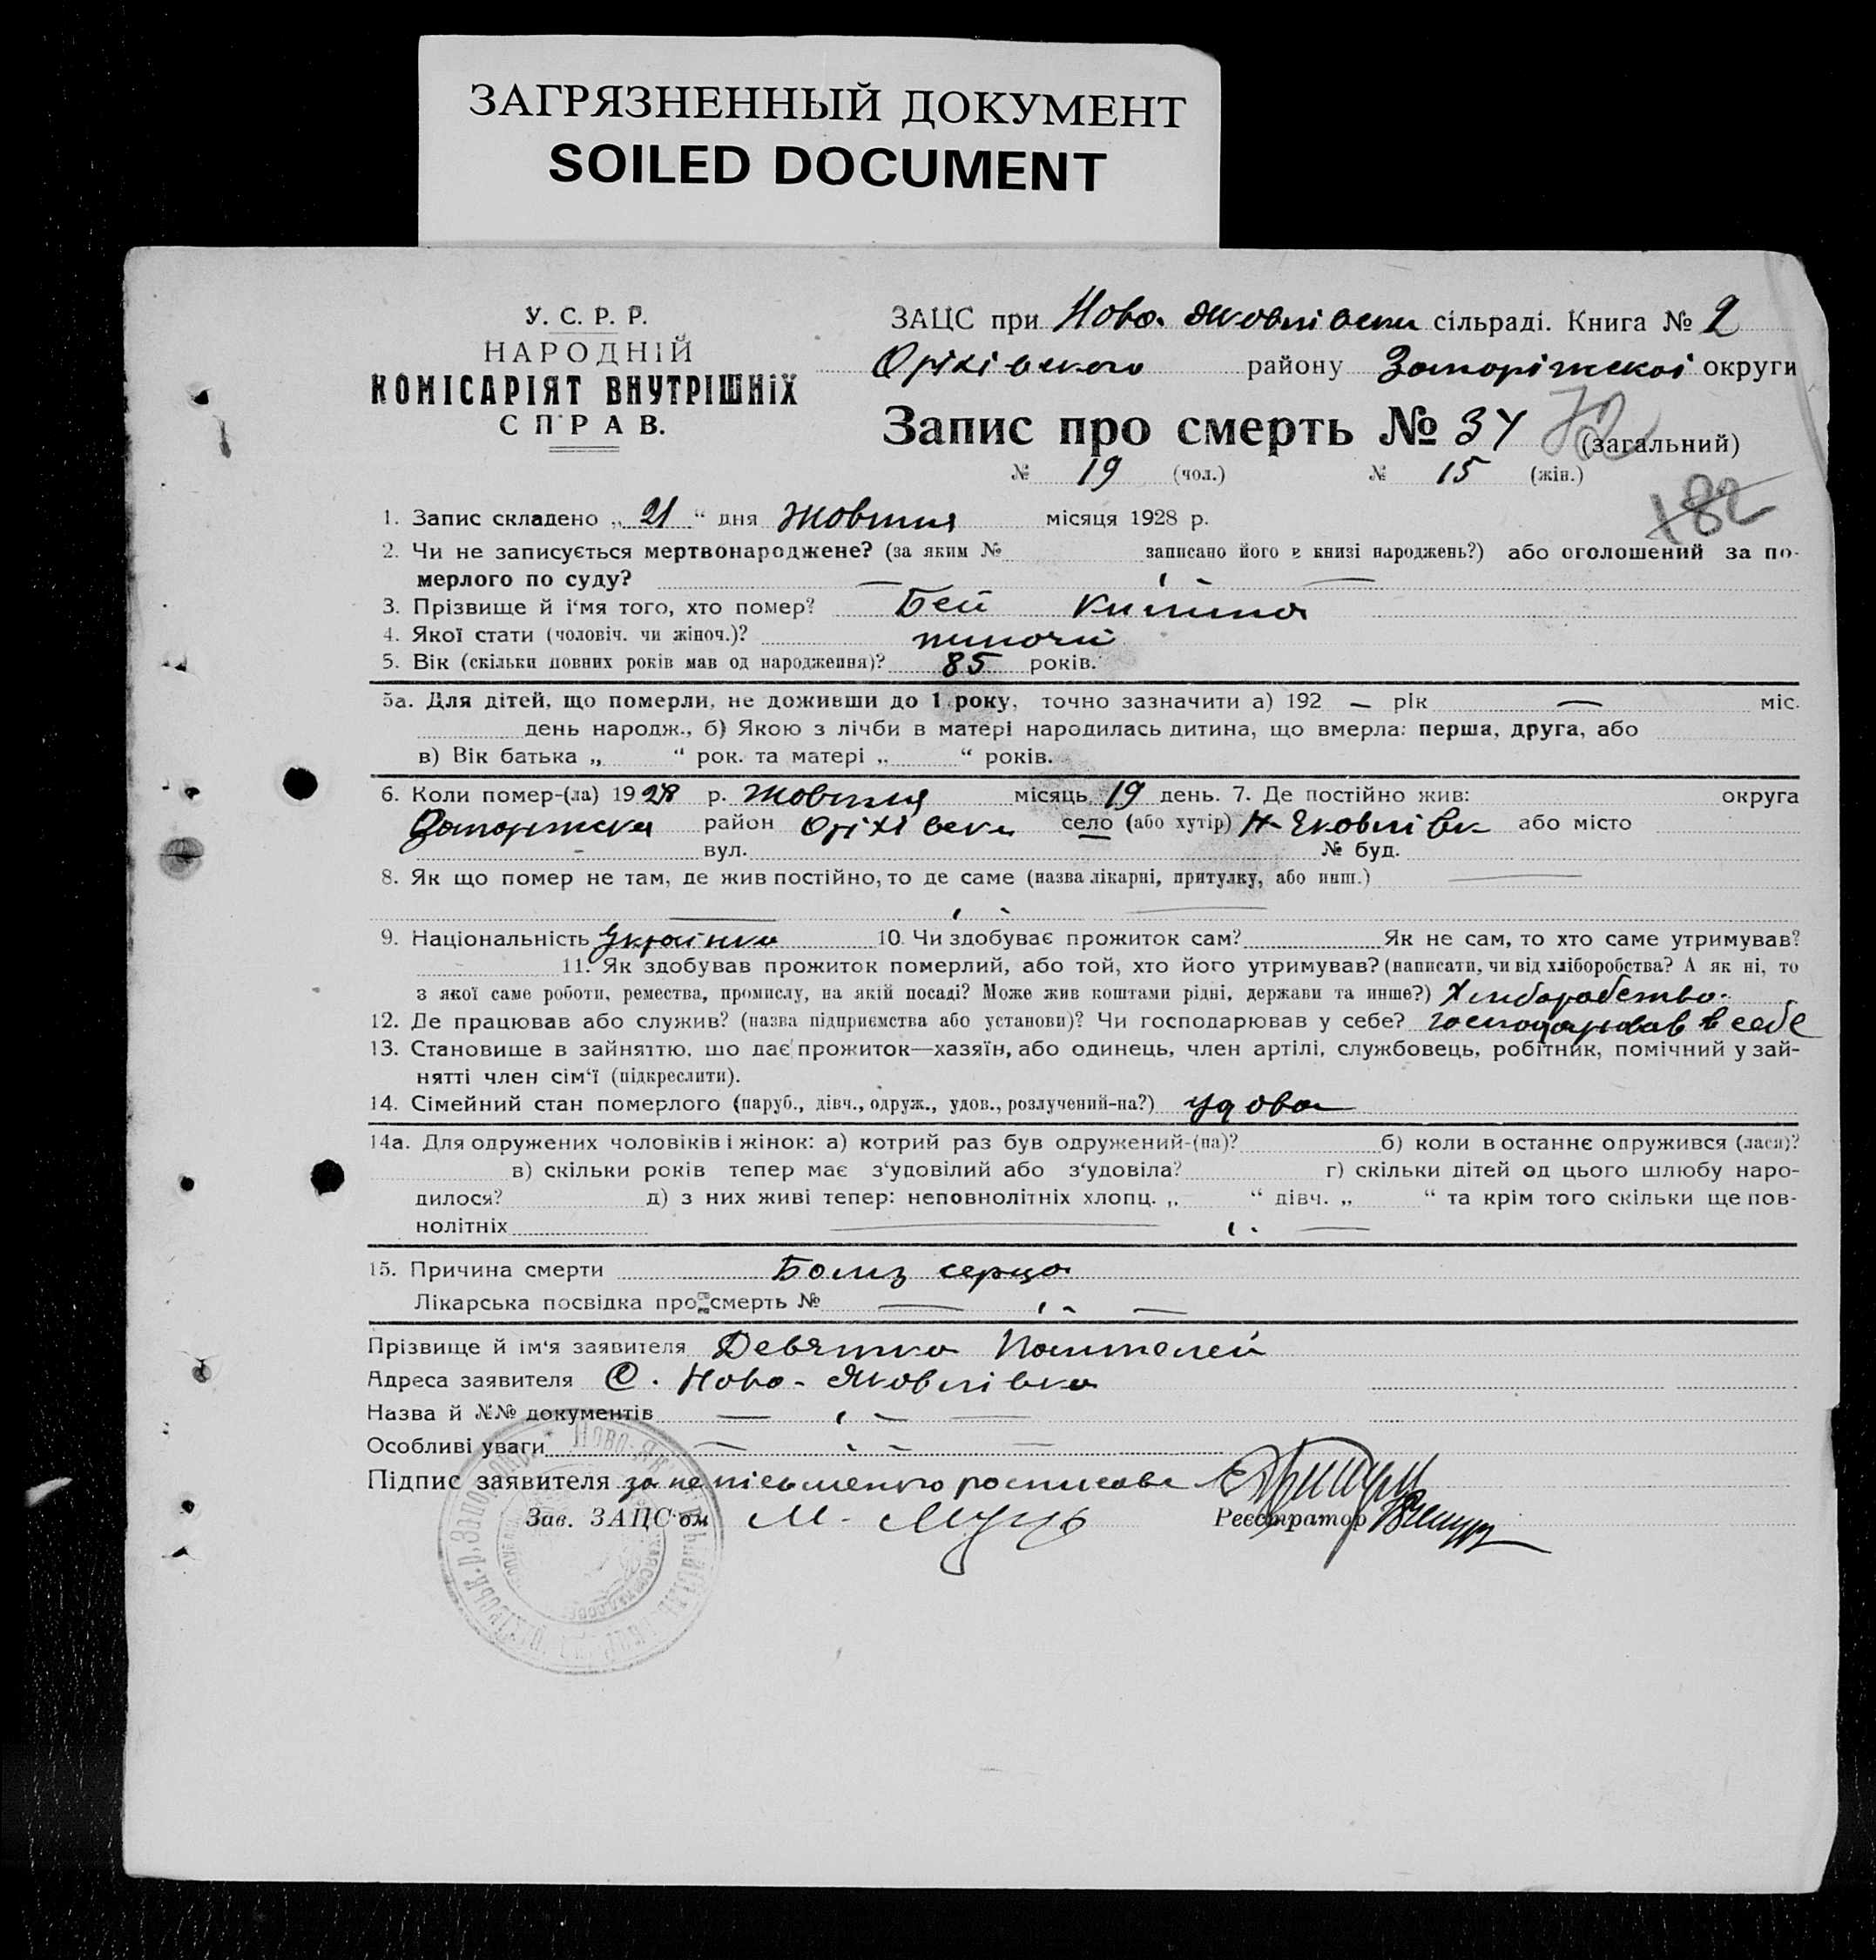 ЗАГРЯЗНЕННЫЙ ДОКУМЕНТ
SOILED DOCUMENT
У. С. Р. Р.
НАРОДНІЙ
КОМІСАРІЯТ ВНУТРІШНІХ
СПРАВ.
ЗАЦС при Ново-Яковлівськ сільраді. Книга № 2
Оріхівского району Запоріжскої округи
Запис про смерть № 34 72 (загальний)
№ 19 (чол.) № 15 (жін.)
182
1. Запис складено „ 21 “ дня Жовтня місяця 1928 р.
2. Чи не записується мертвонароджене? (за яким № записано його в книзі народжень?) або оголошений за по-
мерлого по суду? —
3. Прізвище й і'мя того, хто помер? Бей
4. Якої стати (чоловіч. чи жіноч.)? жиночи
5. Вік (скільки повних років мав од народження)? 85 років.
5а. Для дітей, що померли, не доживши до 1 року, точно зазначити а) 192 — рік — міс.
день народж., б) Якою з лічби в матері народилась дитина, що вмерла: перша, друга, або
в) Вік батька „ “ рок. та матері „ “ років.
6. Коли помер-(ла) 1928 р. Жовтня місяць 19 день. 7. Де постійно жив: округа
Запоріжска район Оріхівськ село (або хутір) Н-Яковлівк або місто
вул. № буд.
8. Як що помер не там, де жив постійно, то де саме (назва лікарні, притулку, або инш.) —
9. Національність Українка 10. Чи здобуває прожиток сам? Як не сам, то хто саме утримував?
11. Як здобував прожиток померлий, або той, хто його утримував? (написати, чи від хліборобства? А як ні, то
з якої саме роботи, ремества, промислу, на якій посаді? Може жив коштами рідні, держави та инше?) Хлиборобство.
12. Де працював або служив? (назва підприємства або установи)? Чи господарював у себе? господарював в себе
13. Становище в зайнятті, що дає прожиток—хазяїн, або одинець, член артілі, службовець, робітник, помічний у зай-
нятті член сім'ї (підкреслити).
14. Сімейний стан померлого (паруб., дівч., одруж., удов., розлучений-на?) удова
14а. Для одружених чоловіків і жінок: а) котрий раз був одружений-(на)? б) коли в останнє одружився (лася)?
в) скільки років тепер має з'удовілий або з'удовіла? г) скільки дітей од цього шлюбу наро-
дилося? д) з них живі тепер: неповнолітніх хлопц. „ “ дівч. „ “ та крім того скільки ще пов-
нолітніх
15. Причина смерти Болиз серца
Лікарська посвідка про смерть № —
Прізвище й ім'я заявителя Девятко Пантелей
Адреса заявителя С. Ново-Яковлівка
Назва й №№ документів —
Особливі уваги —
Підпис заявителя за неписьменого росписавс
Зав. ЗАЦС'ом М. Реєстратор